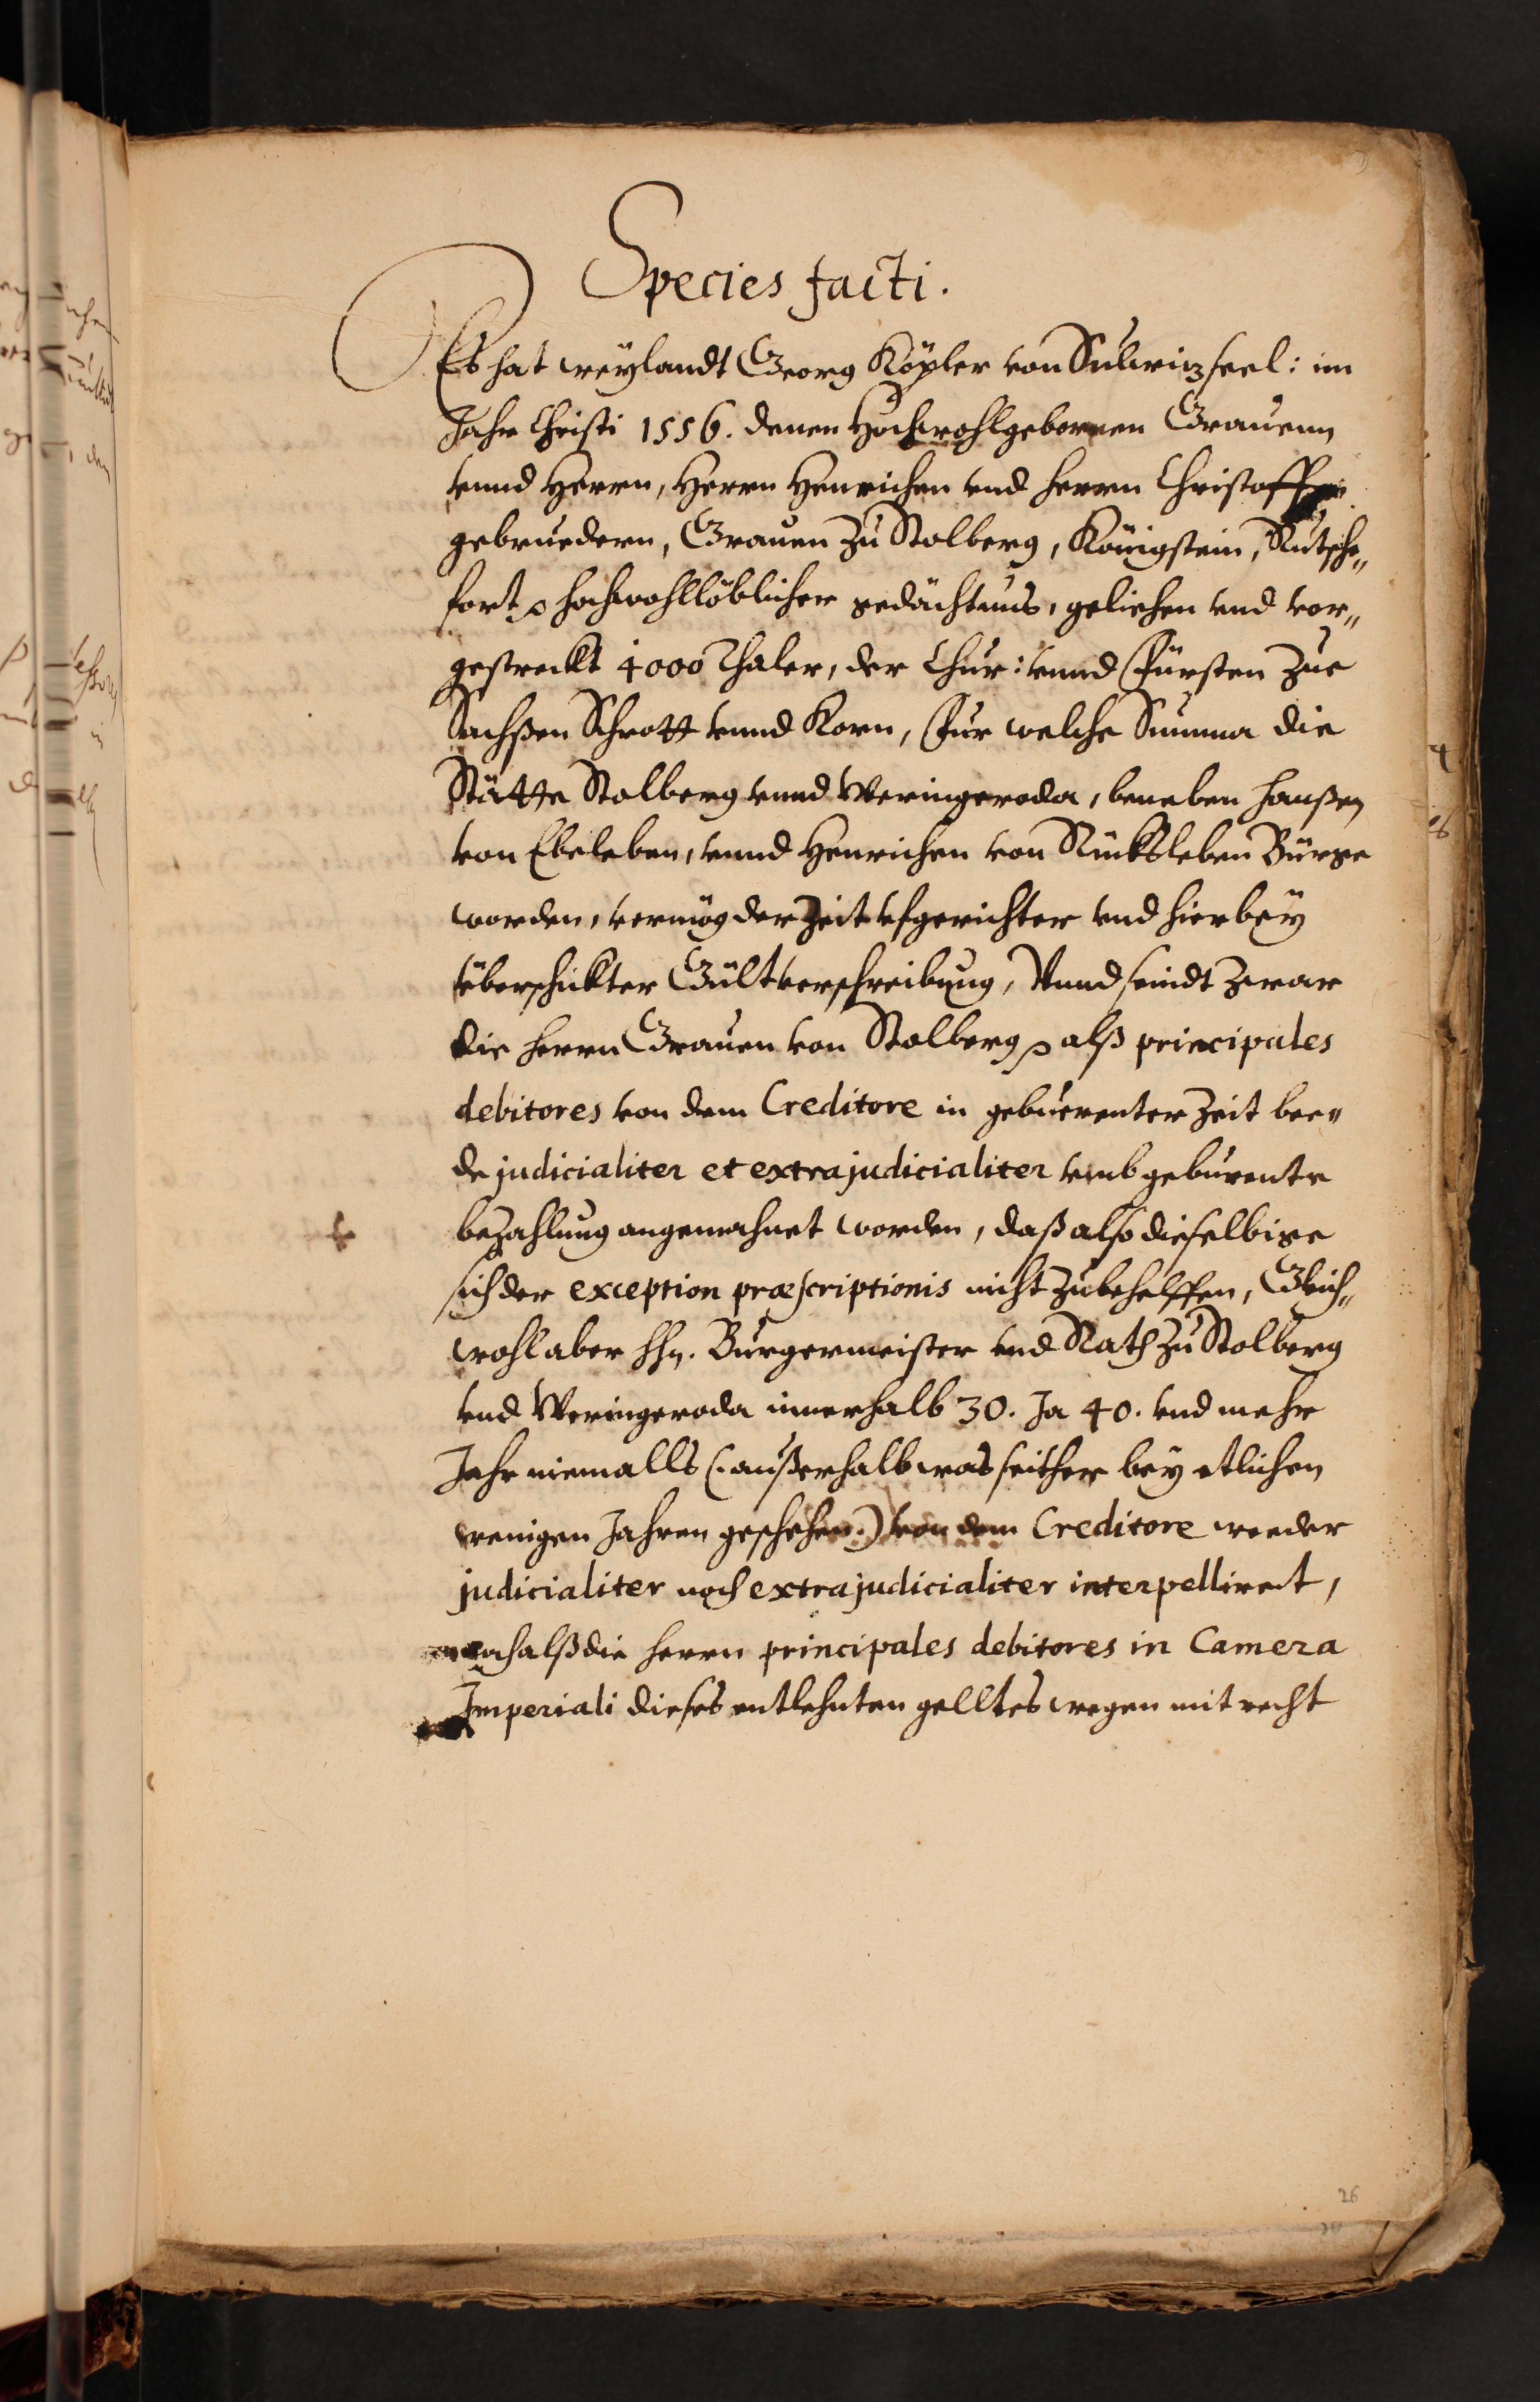 Species facti.
Es hat weÿlandt Georg Köpler von Sulwiz seel: im
Jahr Christi 1556. denen Hochwohlgebornen Grauenn
vnnd Herren, Herrn Henrichen vnd Herrn Christoffen
gebruedern, Grauen zu Stolberg, Königstein, Rutsche„
fort hochwohllöblicher gedächtnus, geliehen vnd vor„
gestreckt 4000 Thaler, der Chur: vnnd Fürsten zue
Sachßen Schrott vnnd Korn, Für welche Summa die
Stätte Stolberg vnnd Weringeroda, beneben Hanßen
von Ebeleben, vnnd Henrichen von Rücksleben Bürge
worden, vermög der Zeit vfgerichter vnd hierbeÿ
überschickter Gültverschreibung, Vnnd seindt zwar
die Herrn Grauen von Stolberg alß principales
debitores von dem Creditore in gebuerenter Zeit bee„
de judicialiter et extrajudicialiter vmb geburente
bezahlung angemahnet worden, daß also dieselbige
sich der exception præscriptionis nicht zubehelffen, Gleich„
wohl aber hhn. Burgermeister vnd Rath zu Stolberg
vnd Weringeroda innerhalb 30. Ja 40. vnd mehr
Jahr niemalls (außerhalb was seither beÿ etlichen
wenigen Jahren geschehen.) von dem Creditore weeder
judicialiter noch extrajudicialiter interpellirect,
nach alß die Herrn principales debitores in Camera
Imperiali dieses entlehnten gelltes wegen mit recht
26